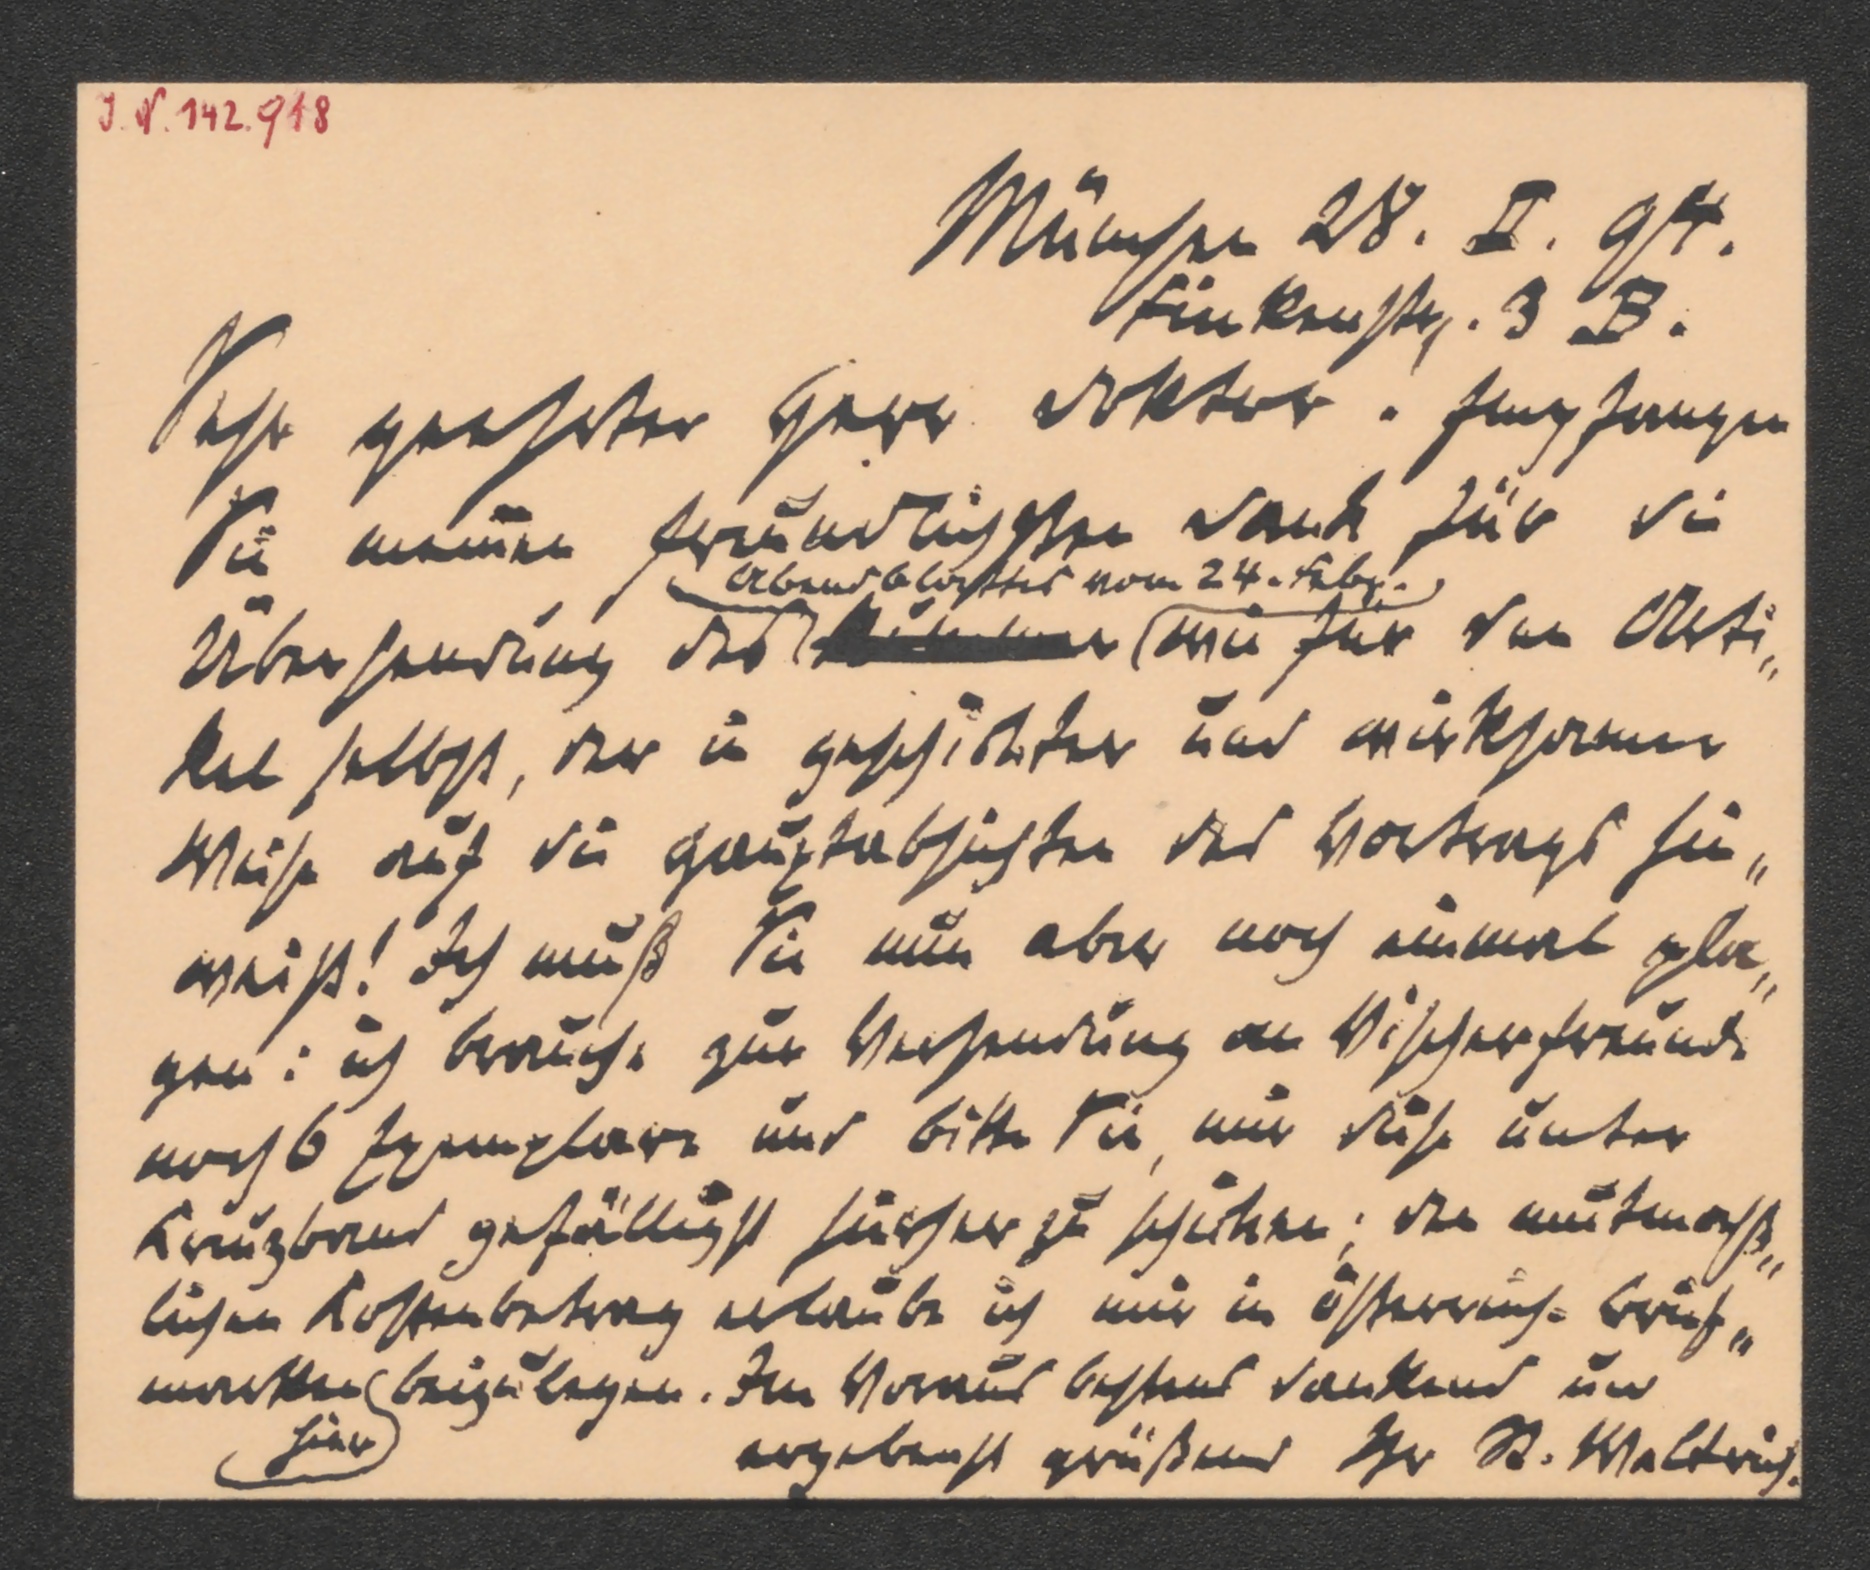 J. N. 142.918
München 28. II. 94.
Finkenstr. 3 B.
Sehr geehrter Herr Doktor. Empfangen
Sie meinen freundlichsten Dank für die
Abendblattes vom 24. Febr.
Übersendung des wie für den Arti„
kel selbst, der in geschickter und wirksamer
Weise auf die Hauptabsichten des Vortrags hin„
weist! Ich muß Sie nun aber noch einmal pla„
gen: ich brauche zur Versendung an Vischerfreunde
noch 6 Exemplare und bitte Sie, mir diese unter
Kreuzband gefälligst hierher zu schicken; den mutmaß„
lichen Kostenbetrag erlaube ich mir in österreich. Brief„
marken beizulegen. Im Voraus bestens dankend und
hier
ergebenst grüßend Ihr R. Weltrich.